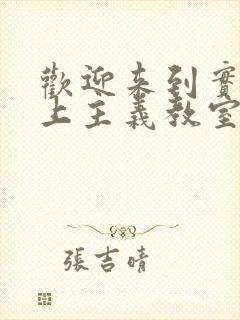 歡迎來到實
上主義教室
張吉晴